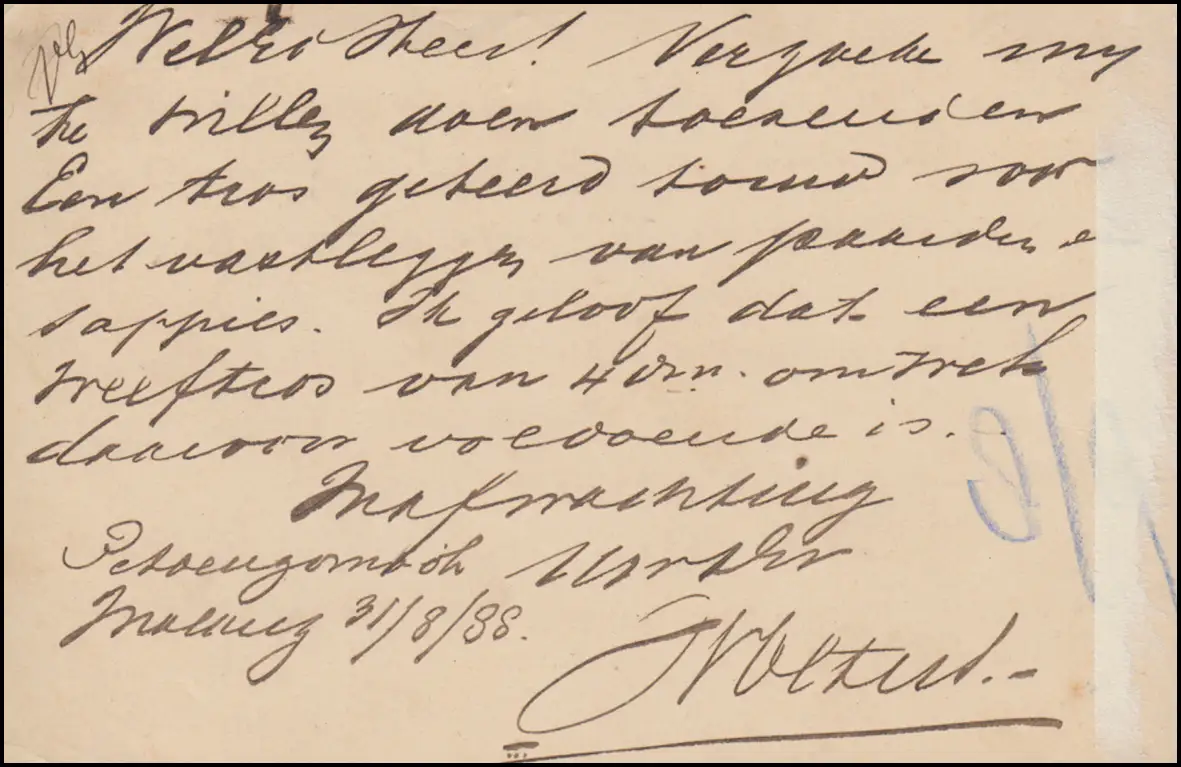 WelEd Heer! Verzoeke my
te willen doen toezenden
Een tros geteerd touw voor
het vastleggen van paarden e
sappies. Ik geloof dat een
treeftros van 4 dm. omtrek
daarvoor voldoende is.
In afwachting
Petoengombok
Malang 31/8/88.